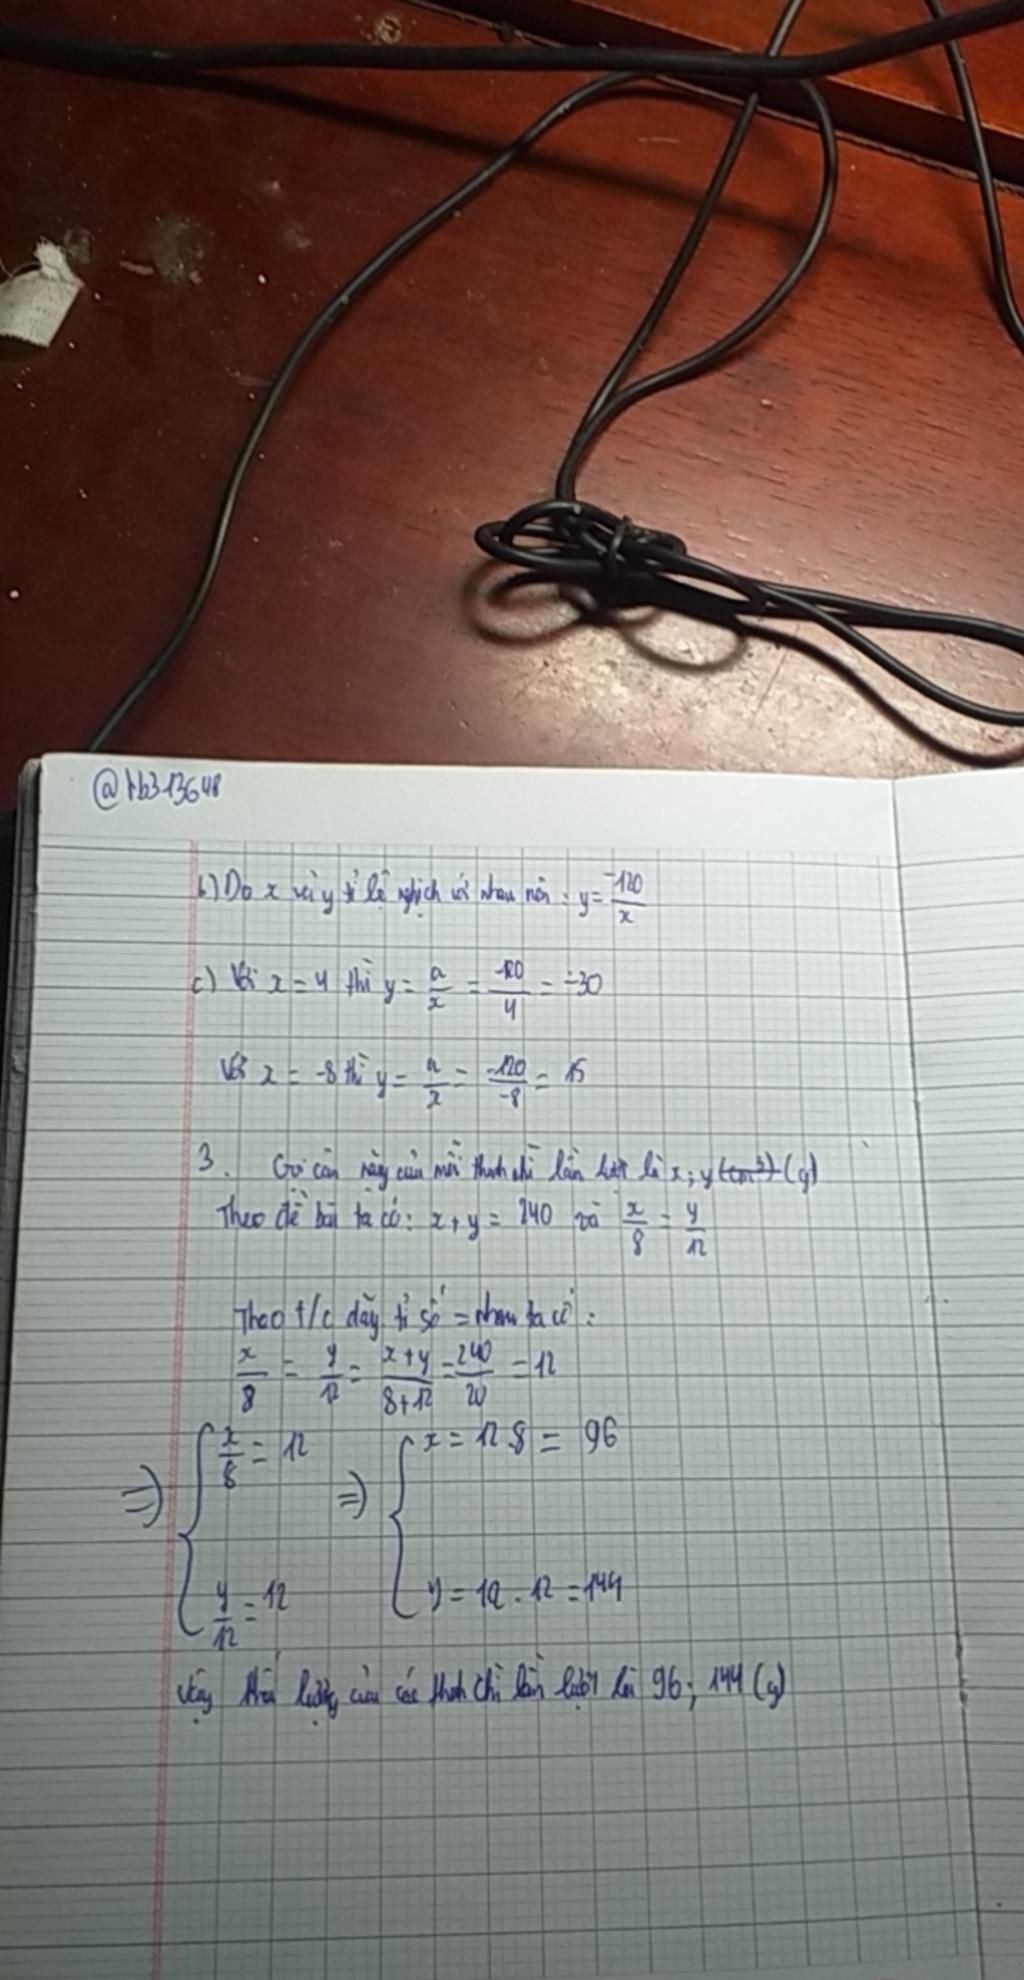 @
b) Do x và y tỉ lệ nghịch với nhau nên: y = -120/x
c) Với x = 4 thì y = a/x = -120/4 = -30
Với x = -8 thì y = a/x = -120/-8 = 15
3. Gọi cân này của mỗi thanh chì lần lượt là x; y (cm³) (g)
Theo đề bài ta có: x + y = 240 và x/8 = y/12
Theo t/c dãy tỉ số = nhau ta có:
x/8 = y/12 = x+y/8+12 = 240/20 = 12
=> { x/8 = 12 => { x = 12.8 = 96
y/12 = 12 y = 12 . 12 = 144
Vậy khối lượng của các thanh chì lần lượt là 96; 144 (g)